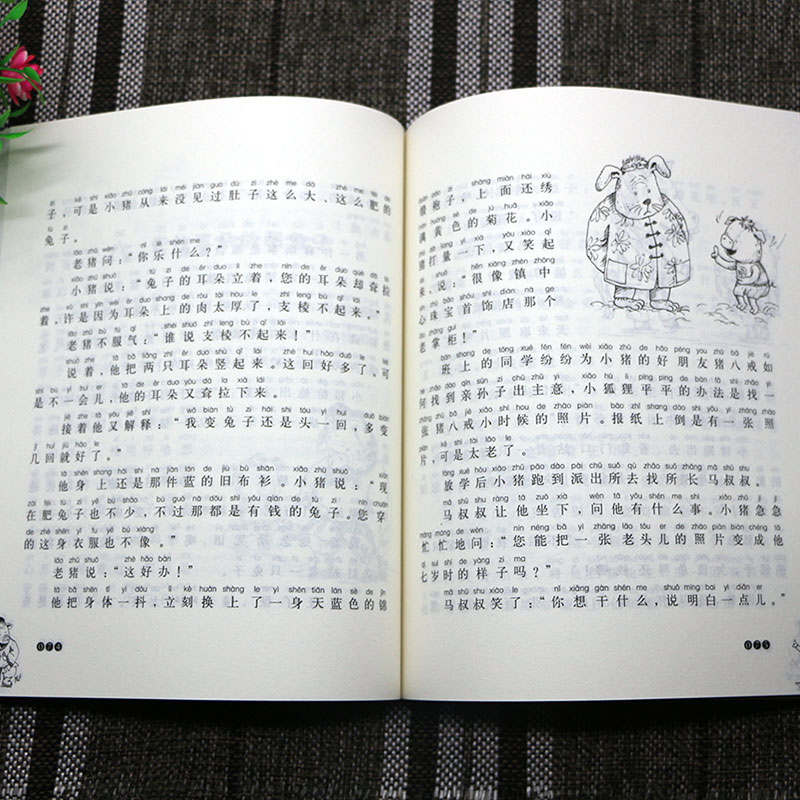 zi kě shì xiǎo zhū cóng lái méi jiàn guo dù zi zhè me dà zhè me féi de
子，可是小猪从来没见过肚子这么大、这么肥的
tù zi
兔子。
lǎo zhū wèn nǐ lè shén me
老猪问：“你乐什么？”
xiǎo zhū shuō tù zi de ěr duo lì zhe nín de ěr duo què dā la
小猪说：“兔子的耳朵立着，您的耳朵却耷拉
zhe xǔ shì yīn wèi ěr duo shang de ròu tài hòu le zhī leng bù qǐ lái
着，许是因为耳朵上的肉太厚了，支棱不起来。”
lǎo zhū bù fú qì shéi shuō zhī leng bù qǐ lái
老猪不服气：“谁说支棱不起来！”
shuō zhe tā bǎ liǎng zhī ěr duo shù qǐ lái zhè huí hǎo duō le kě
说着，他把两只耳朵竖起来。这回好多了，可
shì bù yí huìr tā de ěr duo yòu dā la xià lái
是不一会儿，他的耳朵又耷拉下来。
jiē zhe tā yòu jiě shì wǒ biàn tù zi hái shi tóu yì huí duō biàn
接着他又解释：“我变兔子还是头一回，多变
jǐ huí jiù hǎo le
几回就好了。”
tā shēn shang hái shi nà jiàn lán de jiù bù shān xiǎo zhū shuō xiàn
他身上还是那件蓝的旧布衫。小猪说：“现
zài féi tù zi yě bù shǎo bú guò nà dōu shì yǒu qián de tù zi nín chuān
在肥兔子也不少，不过那都是有钱的兔子。您穿
de zhè shēn yī fu yě bú xiàng
的这身衣服也不像。”
lǎo zhū shuō zhè hǎo bàn
老猪说：“这好办！”
tā bǎ shēn tǐ yì dǒu lì kè huàn shàng le yì shēn tiān lán sè de jǐn
他把身体一抖，立刻换上了一身天蓝色的锦
074
duàn páo zi shàng miàn hái xiù
缎袍子，上面还绣
mǎn huáng sè de jú huā xiǎo
满黄色的菊花。小
zhū dǎ liang yí xià yòu xiào qǐ
猪打量一下，又笑起
lái shuō hěn xiàng zhèn zhōng
来，说：“很像镇中
xīn zhū bǎo shǒu shì diàn nà ge
心珠宝首饰店那个
lǎo zhǎng guì
老掌柜！”
bān shang de tóng xué fēn fēn wèi xiǎo zhū de hǎo péng you zhū bā jiè rú
班上的同学纷纷为小猪的好朋友猪八戒如
hé zhǎo dào qīn sūn zi chū zhǔ yi xiǎo hú li píng ping de bàn fǎ shì zhǎo yì
何找到亲孙子出主意，小狐狸平平的办法是找一
zhāng zhū bā jiè xiǎo shí hou de zhào piàn bào zhǐ shang dào shì yǒu yì zhāng zhào
张猪八戒小时候的“照片。报纸上倒是有一张照
piàn kě shì tài lǎo le
片，可是太老了。
fàng xué hòu xiǎo zhū pǎo dào pài chū suǒ qù zhǎo suǒ zhǎng mǎ shū shu
放学后小猪跑到派出所去找所长马叔叔。
mǎ shū shu ràng tā zuò xia wèn tā yǒu shén me shì xiǎo zhū jí jí
马叔叔让他坐下，问他有什么事。小猪急急
máng máng de wèn nín néng bǎ yì zhāng lǎo tóur de zhào piàn biàn chéng tā
忙忙地问：“您能把一张老头儿的照片变成他
qī suì shí de yàng zi ma
七岁时的样子吗？”
mǎ shū shu xiào le nǐ xiǎng gàn shén me shuō míng bai yì diǎnr
马叔叔笑了：“你想干什么，说明白一点儿。”
075